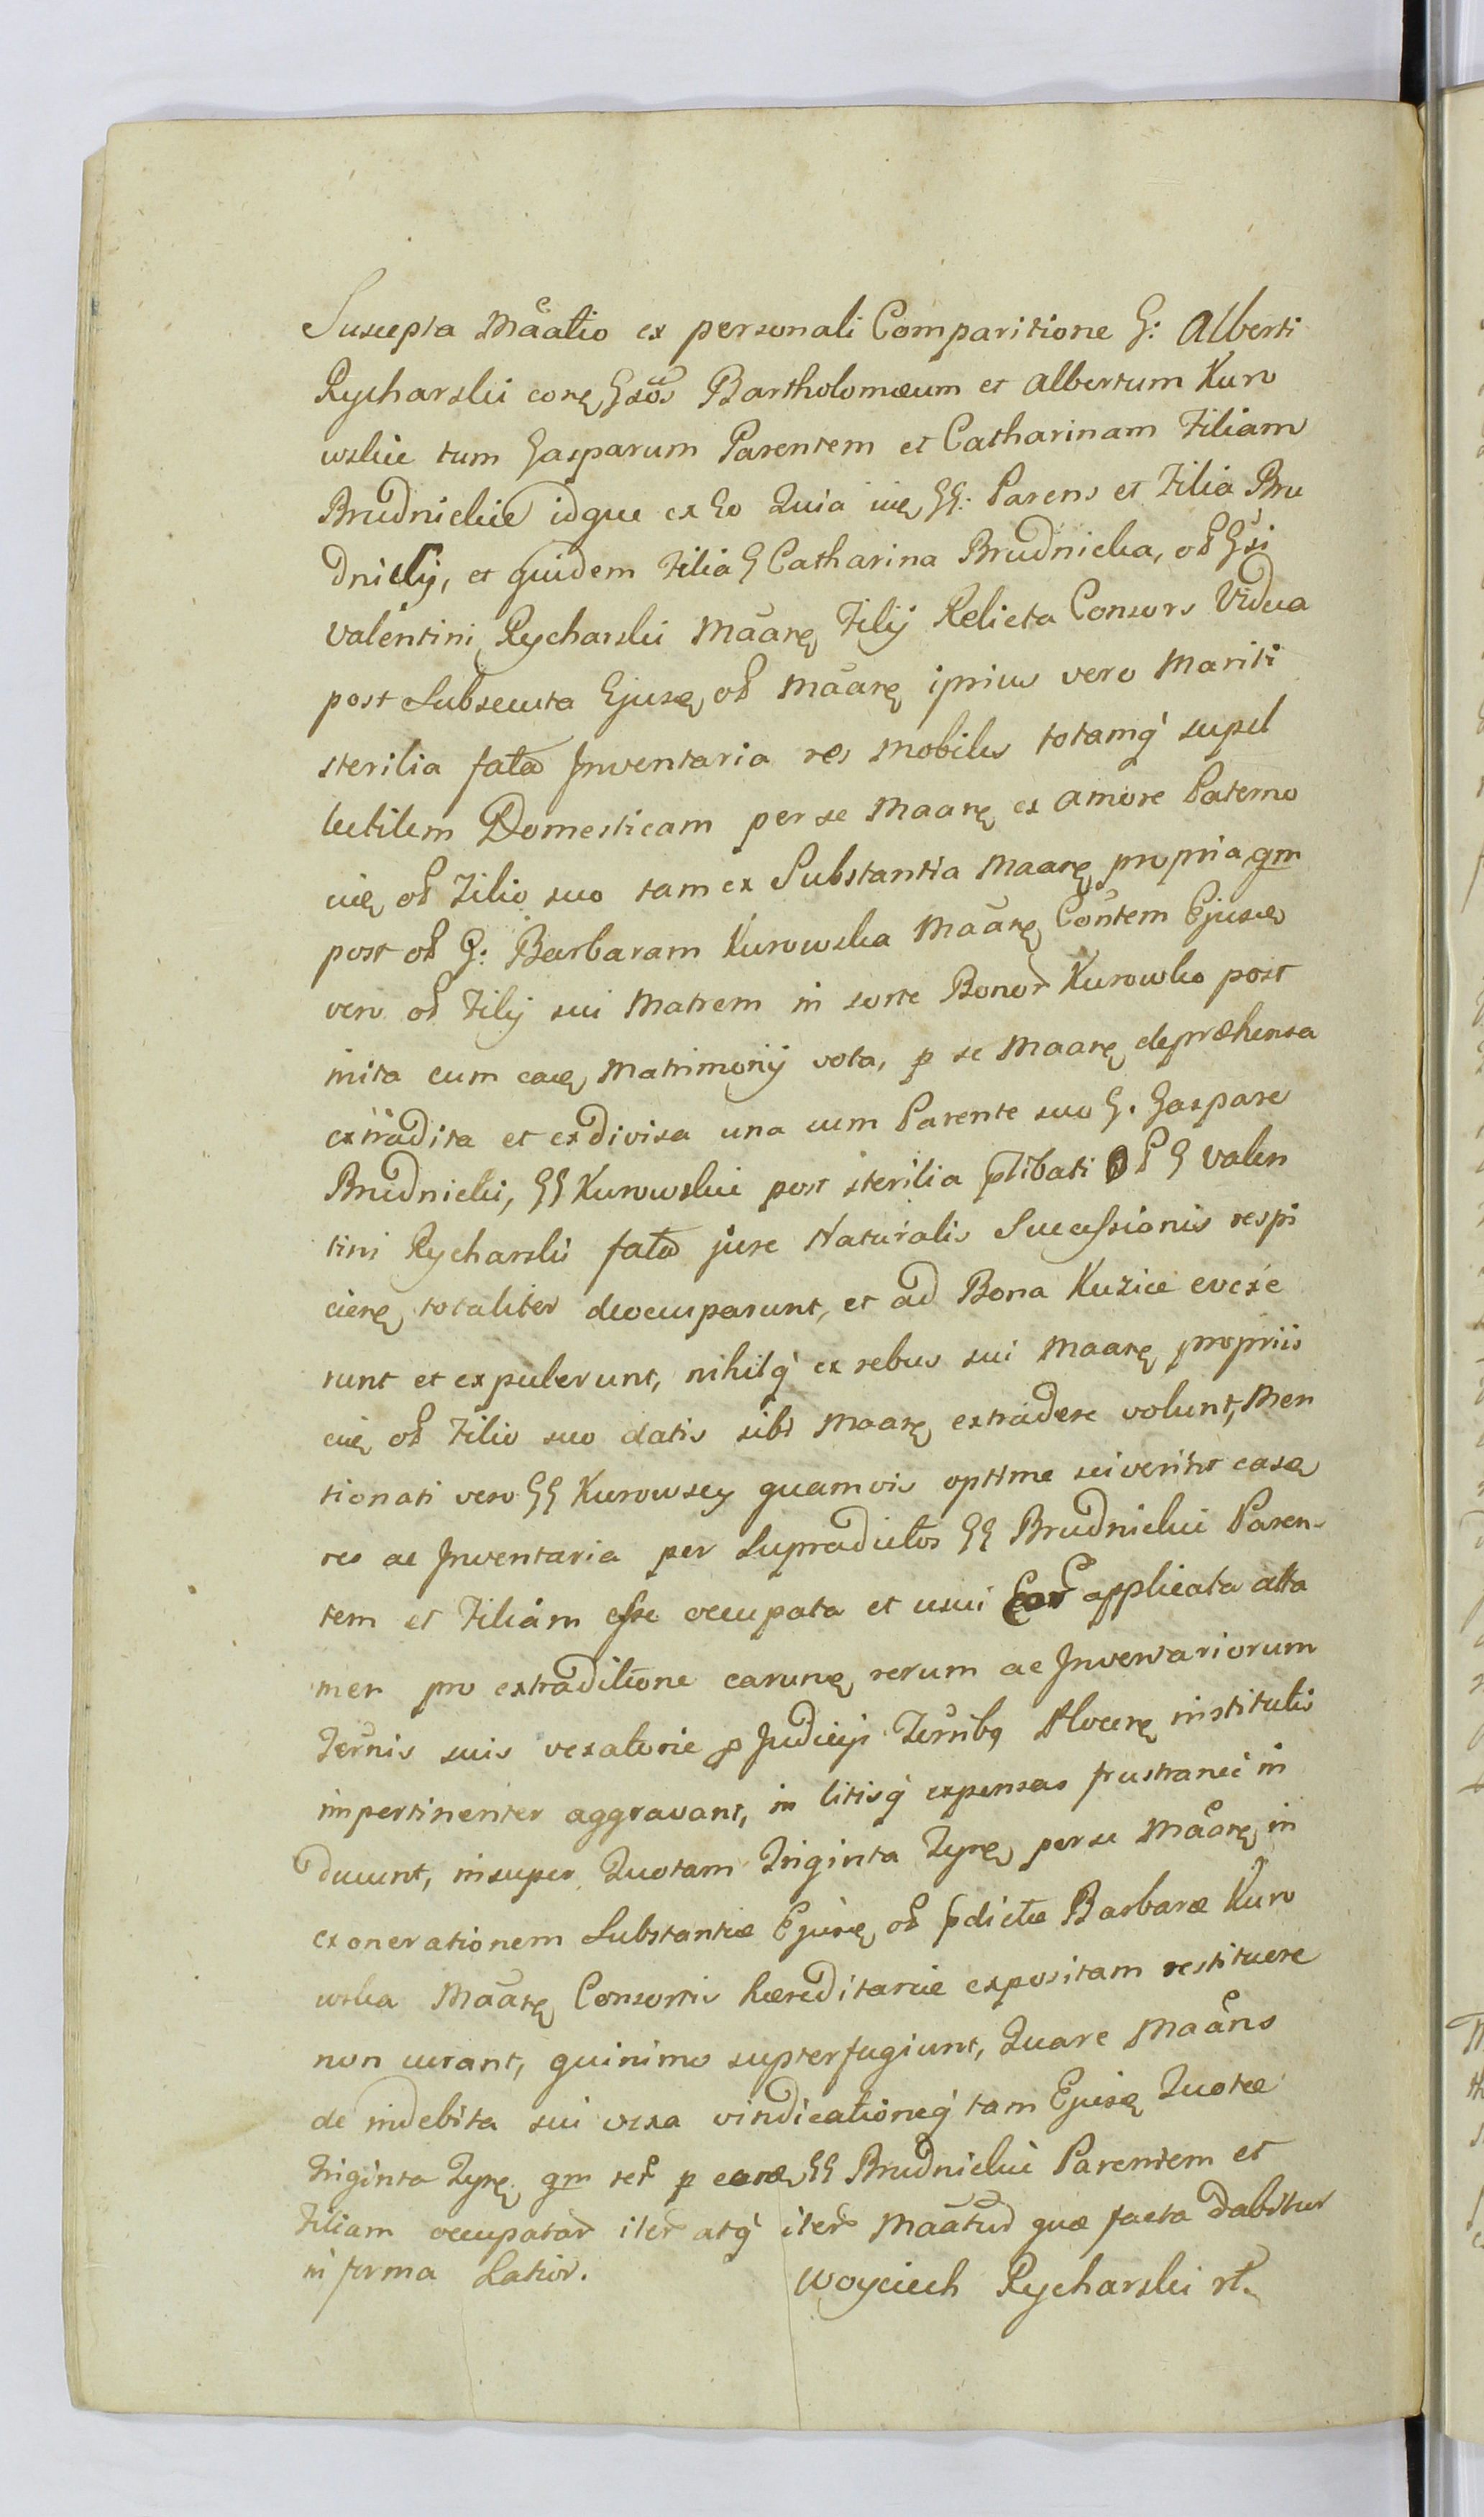 Suscepta Mãatio ex personali Comparitione G: Alberti
Rycharski coñe Gsos Bartholomæum et Albertum Kuro
wskie tum Gasparum Parentem et Catharinam Filiam
Brudnickie idque ex Eo Quia iid GG: Parens et Filia Bru
dniccy, et quidem Filia G Catharina Brudnicka, od Gsi
Valentini Rycharski Mãaне Filij Relicta Consors Vidua
post Subsecuta Ejusd od Mãane ipsius vero Mariti
sterilia fata Inventaria res Mobiles totamq supel
lectilem Domesticam per se Maane ex amore Paterno
eid od Filio suo tam ex Substantia Maane propria qm
post od G: Barbaram Kurowska Mãane Contem Ejusd
vero od Filij sui Matrem in sorte Bonor Kurowko post
inita cum ead Matrimonij vota, p se Maane depræhensa
extradita et exdivisa una cum Parente suo G. Gaspare
Brudnicki, GG Kurowskie post sterilia plibati od G Valen
tini Rycharski fata jure Naturalis Successionis respi
ciene totaliter deocuparunt, et ad Bona Kuzice evexe
runt et expulerunt, nihilq ex rebus sui Maane propriis
eid od Filio suo datis sibi Maane extradere volunt, Men
tionati vero GG Kurowscy quamvis optime sciverint easd
res ac Inventaria per Supradictos GG Brudnickie Paren-
tem et Filiam esse occupata et usui Eor applicata atta
men pro extraditione earund rerum ac Inventariorum
Termis suis vexatorie p Judicij Termibq Plocene institutis
impertinenter aggravant, in litisq expensas frustranee in
ducunt, insuper Quotam Triginta Tyne per se Mãane in
exonerationem Substantiæ Ejusd od pdictæ Barbaræ Kuro
wska Mãane Consortis hæreditariæ expositam restituere
non curant, quinimo supterfugiunt, Quare Maans
de indebita sui vexa vindicationeq tam Ejusd Quotæ
Triginta Tyne qm rer p eosd GG Brudnickie Parentem et
Filiam occupatar iter atq iter Maatur quæ facta dabitur
in forma Latior.
Woyciech Rycharski rt.